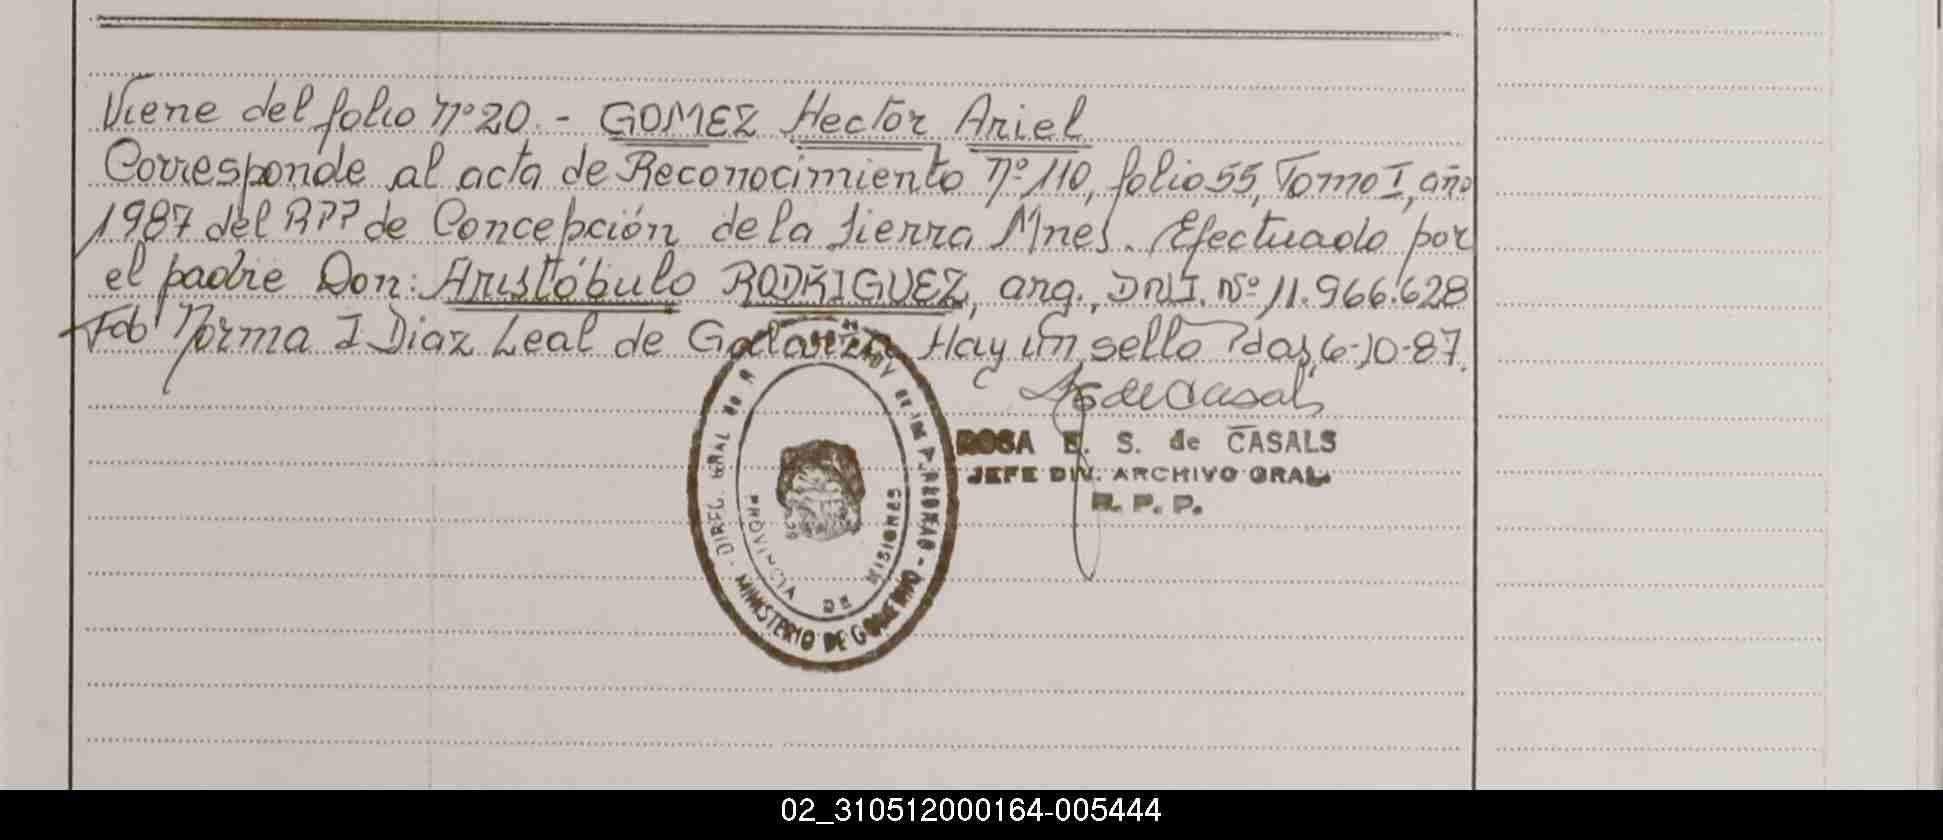 Viene del folio Nº 20. - GOMEZ Hector Ariel
Corresponde al acta de Reconocimiento Nº 110, folio 55, Tomo I, año
1987 del RPP de Concepción de la Sierra Mnes. Efectuado por
el padre Don: Aristóbulo RODRIGUEZ, arg., DNI. Nº 11.966.628
Fdo Norma I Diaz Leal de Hay un sello Pdas, 6-10-87.
de Casals
ROSA E. S. de CASALS
JEFE DIV. ARCHIVO GRAL.
R. P. P.
DIREC. GRAL DE LAS PERSONAS - MINISTERIO DE GOBIERNO
PROVINCIA DE MISIONES
02_310512000164-005444